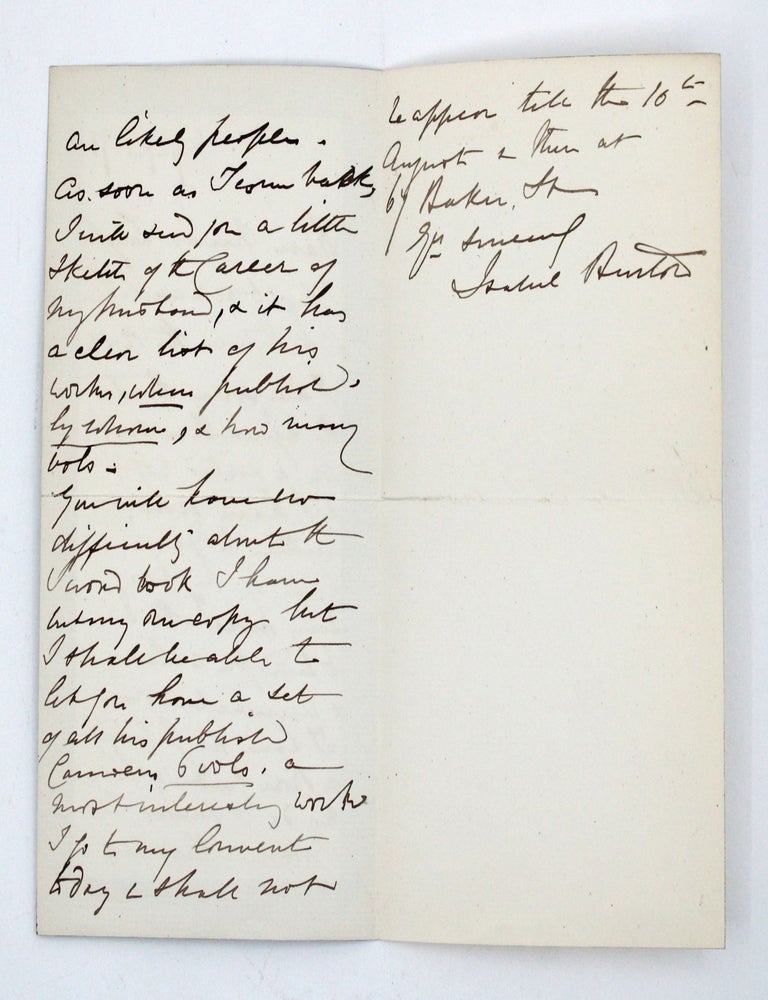 are likely people.
As soon as I come back,
I will send you a little
sketch of the Career of
my husband, & it has
a clear list of his
works, when published,
by whom, & how many
vols.
You will have no
difficulty about the
Sword book I have
but my own copy but
I shall be able to
let you have a set
of all his published
Camoens 6 vols. a
most interesting work
I go to my Convent
today & shall not
reappear till the 10th
August & then at
67 Baker St
Yrs sincerely
Isabel Burton